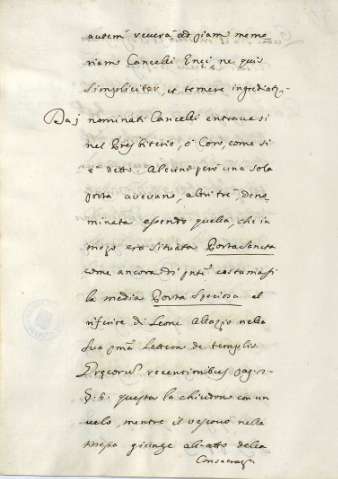 autem reverà ad piam memo
riam Cancelli Enei ne quis
simpliciter, et temere ingrediat.
Da j nominati Cancelli entrava si
nel Presbiterio, ò Coro, come si
è detto. Alcuno però una sola
porta avevano, altri trè, deno
minata essendo quella, che in
mezo era situata Porta Sancta
come ancora di pnti costumasi
la media Porta Speciosa al
riferire di Leone Allazio nella
sua pma Lettera de templis
Grecorum recentioribus pag.
questa la chiudono con un
velo, mentre il vescovo nella
messa giunge all atto della
Consacraz